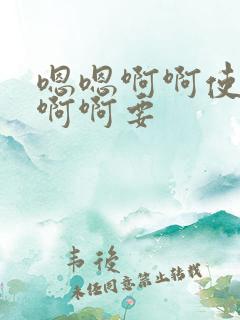 嗯嗯啊啊使
啊啊要
韦後
未经同意禁止转载